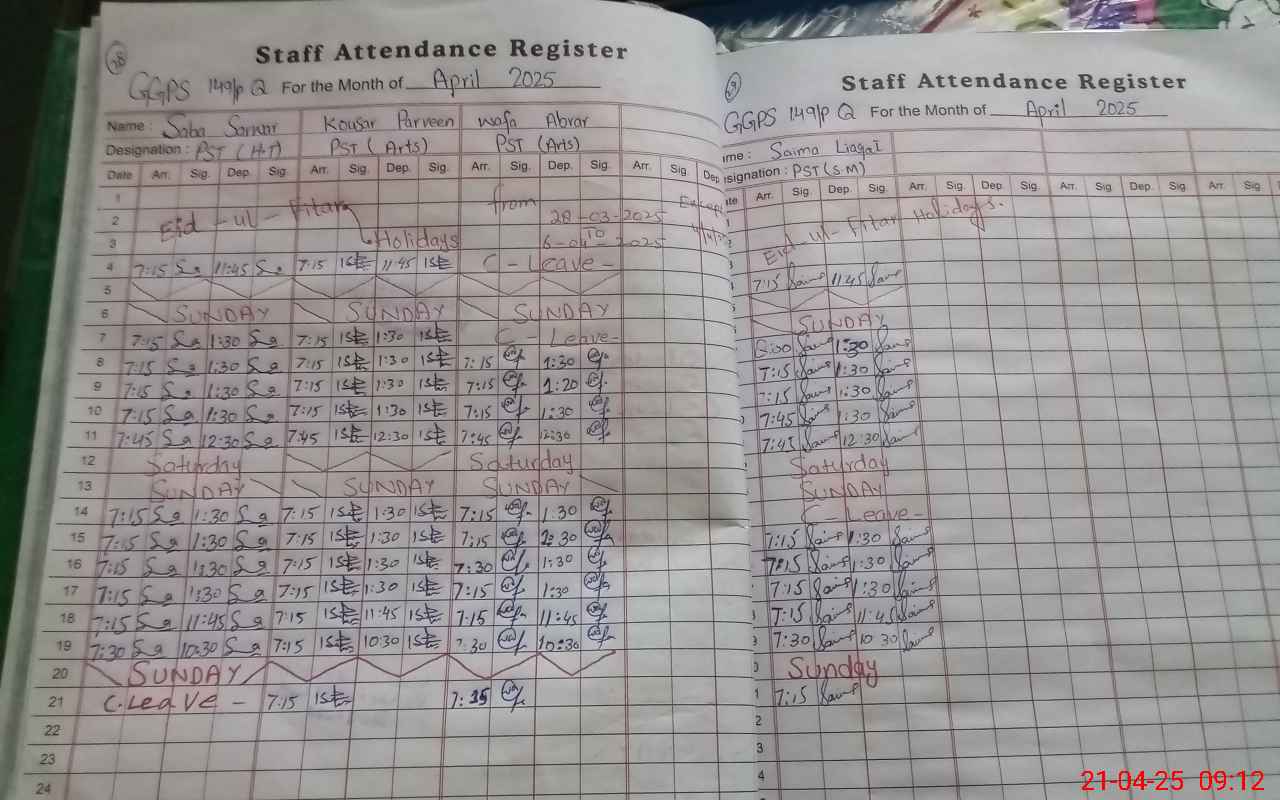 28
Staff Attendance Register
GGPS 149/p Q For the Month of April 2025
Name : Saba Sarwar Kousar Parveen Wafa Abrar
Designation : PST (H.T) PST (Arts) PST (Arts)
Date Arr. Sig. Dep. Sig. Arr. Sig. Dep. Sig. Arr. Sig. Dep. Sig. Arr. Sig. Dep.
1 from
2 Eid-ul-Fitar 28-03-2025
3 Holidays TO 6-04-2025
4 7:15 Sa 11:45 Sa 7:15 11:45 C-Leave-
5
6 SUNDAY SUNDAY SUNDAY
7 7:15 Sa 1:30 Sa 7:15 1:30 C-Leave-
8 7:15 Sa 1:30 Sa 7:15 1:30 7:15 1:30
9 7:15 Sa 1:30 Sa 7:15 1:30 7:15 1:20
10 7:15 Sa 1:30 Sa 7:15 1:30 7:15 1:30
11 7:45 Sa 12:30 Sa 7:45 12:30 7:45 12:30
12 Saturday Saturday
13 SUNDAY SUNDAY SUNDAY
14 7:15 Sa 1:30 Sa 7:15 1:30 7:15 1:30
15 7:15 Sa 1:30 Sa 7:15 1:30 7:15 30
16 7:15 Sa 1:30 Sa 7:15 1:30 7:30 1:30
17 7:15 Sa 1:30 Sa 7:15 1:30 7:15 1:30
18 7:15 Sa 11:45 Sa 7:15 11:45 7:15 11:45
19 7:30 Sa 10:30 Sa 7:15 10:30 7:30 10:30
20 SUNDAY
21 C.Leave - 7:15 7:15
22
23
24
Staff Attendance Register
GGPS 149/p Q For the Month of April 2025
me : Saima Liaqat
signation : PST (S.M)
te Arr. Sig. Dep. Sig. Arr. Sig. Dep. Sig. Arr. Sig. Dep. Sig. Arr. Sig.
Eid-ul-Fitar Holidays.
7:15 Saima 11:45 Saima
SUNDAY
8:00 Saima 1:30 Saima
7:15 Saima 1:30 Saima
7:15 Saima 1:30 Saima
7:45 Saima 1:30 Saima
7:45 Saima 12:30 Saima
Saturday
SUNDAY
C-Leave-
7:15 Saima 1:30 Saima
7:15 Saima 1:30 Saima
7:15 Saima 1:30 Saima
7:15 Saima 11:45 Saima
9 7:30 Saima 10 30 Saima
Sunday
1 7:15 Saima
2
3
4
21-04-25 09:12